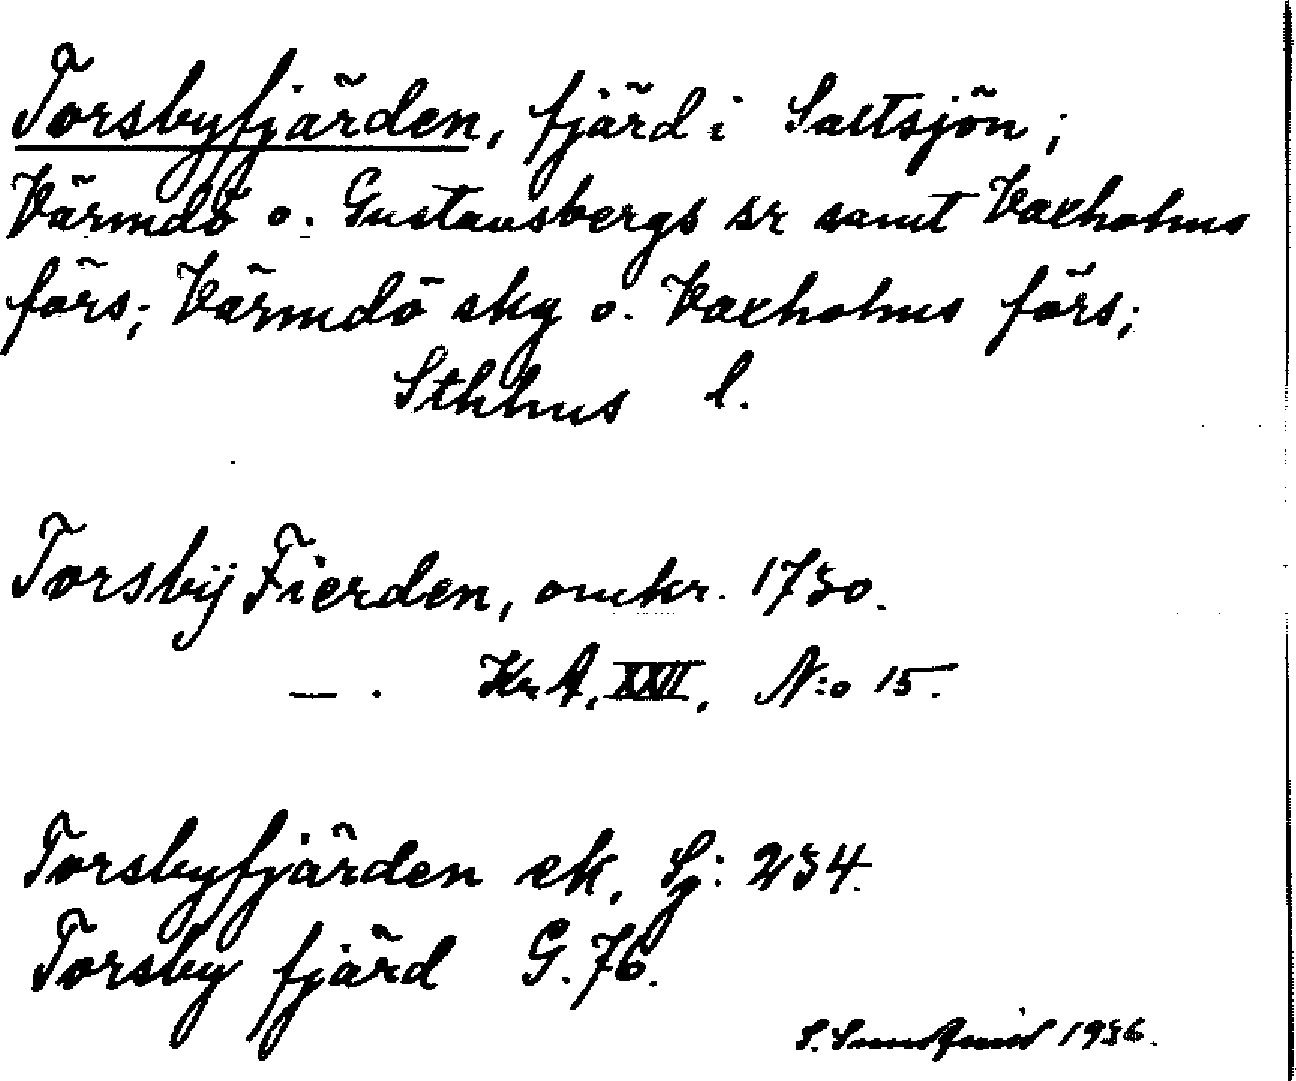 Torsbyfjärden, fjärd i Saltsjön;
Värmdö o. Gustavsbergs sr samt Vaxholms
förs; Värmdö skg o. Vaxholms förs;
Sthlms l.
Torsbÿ Fierden, omkr. 1730.
— . Kr A, XXVI, N:o 15.
Torsbyfjärden ek, Sj: 234.
Torsby fjärd G. 76.
S. Sundqvist 1936.